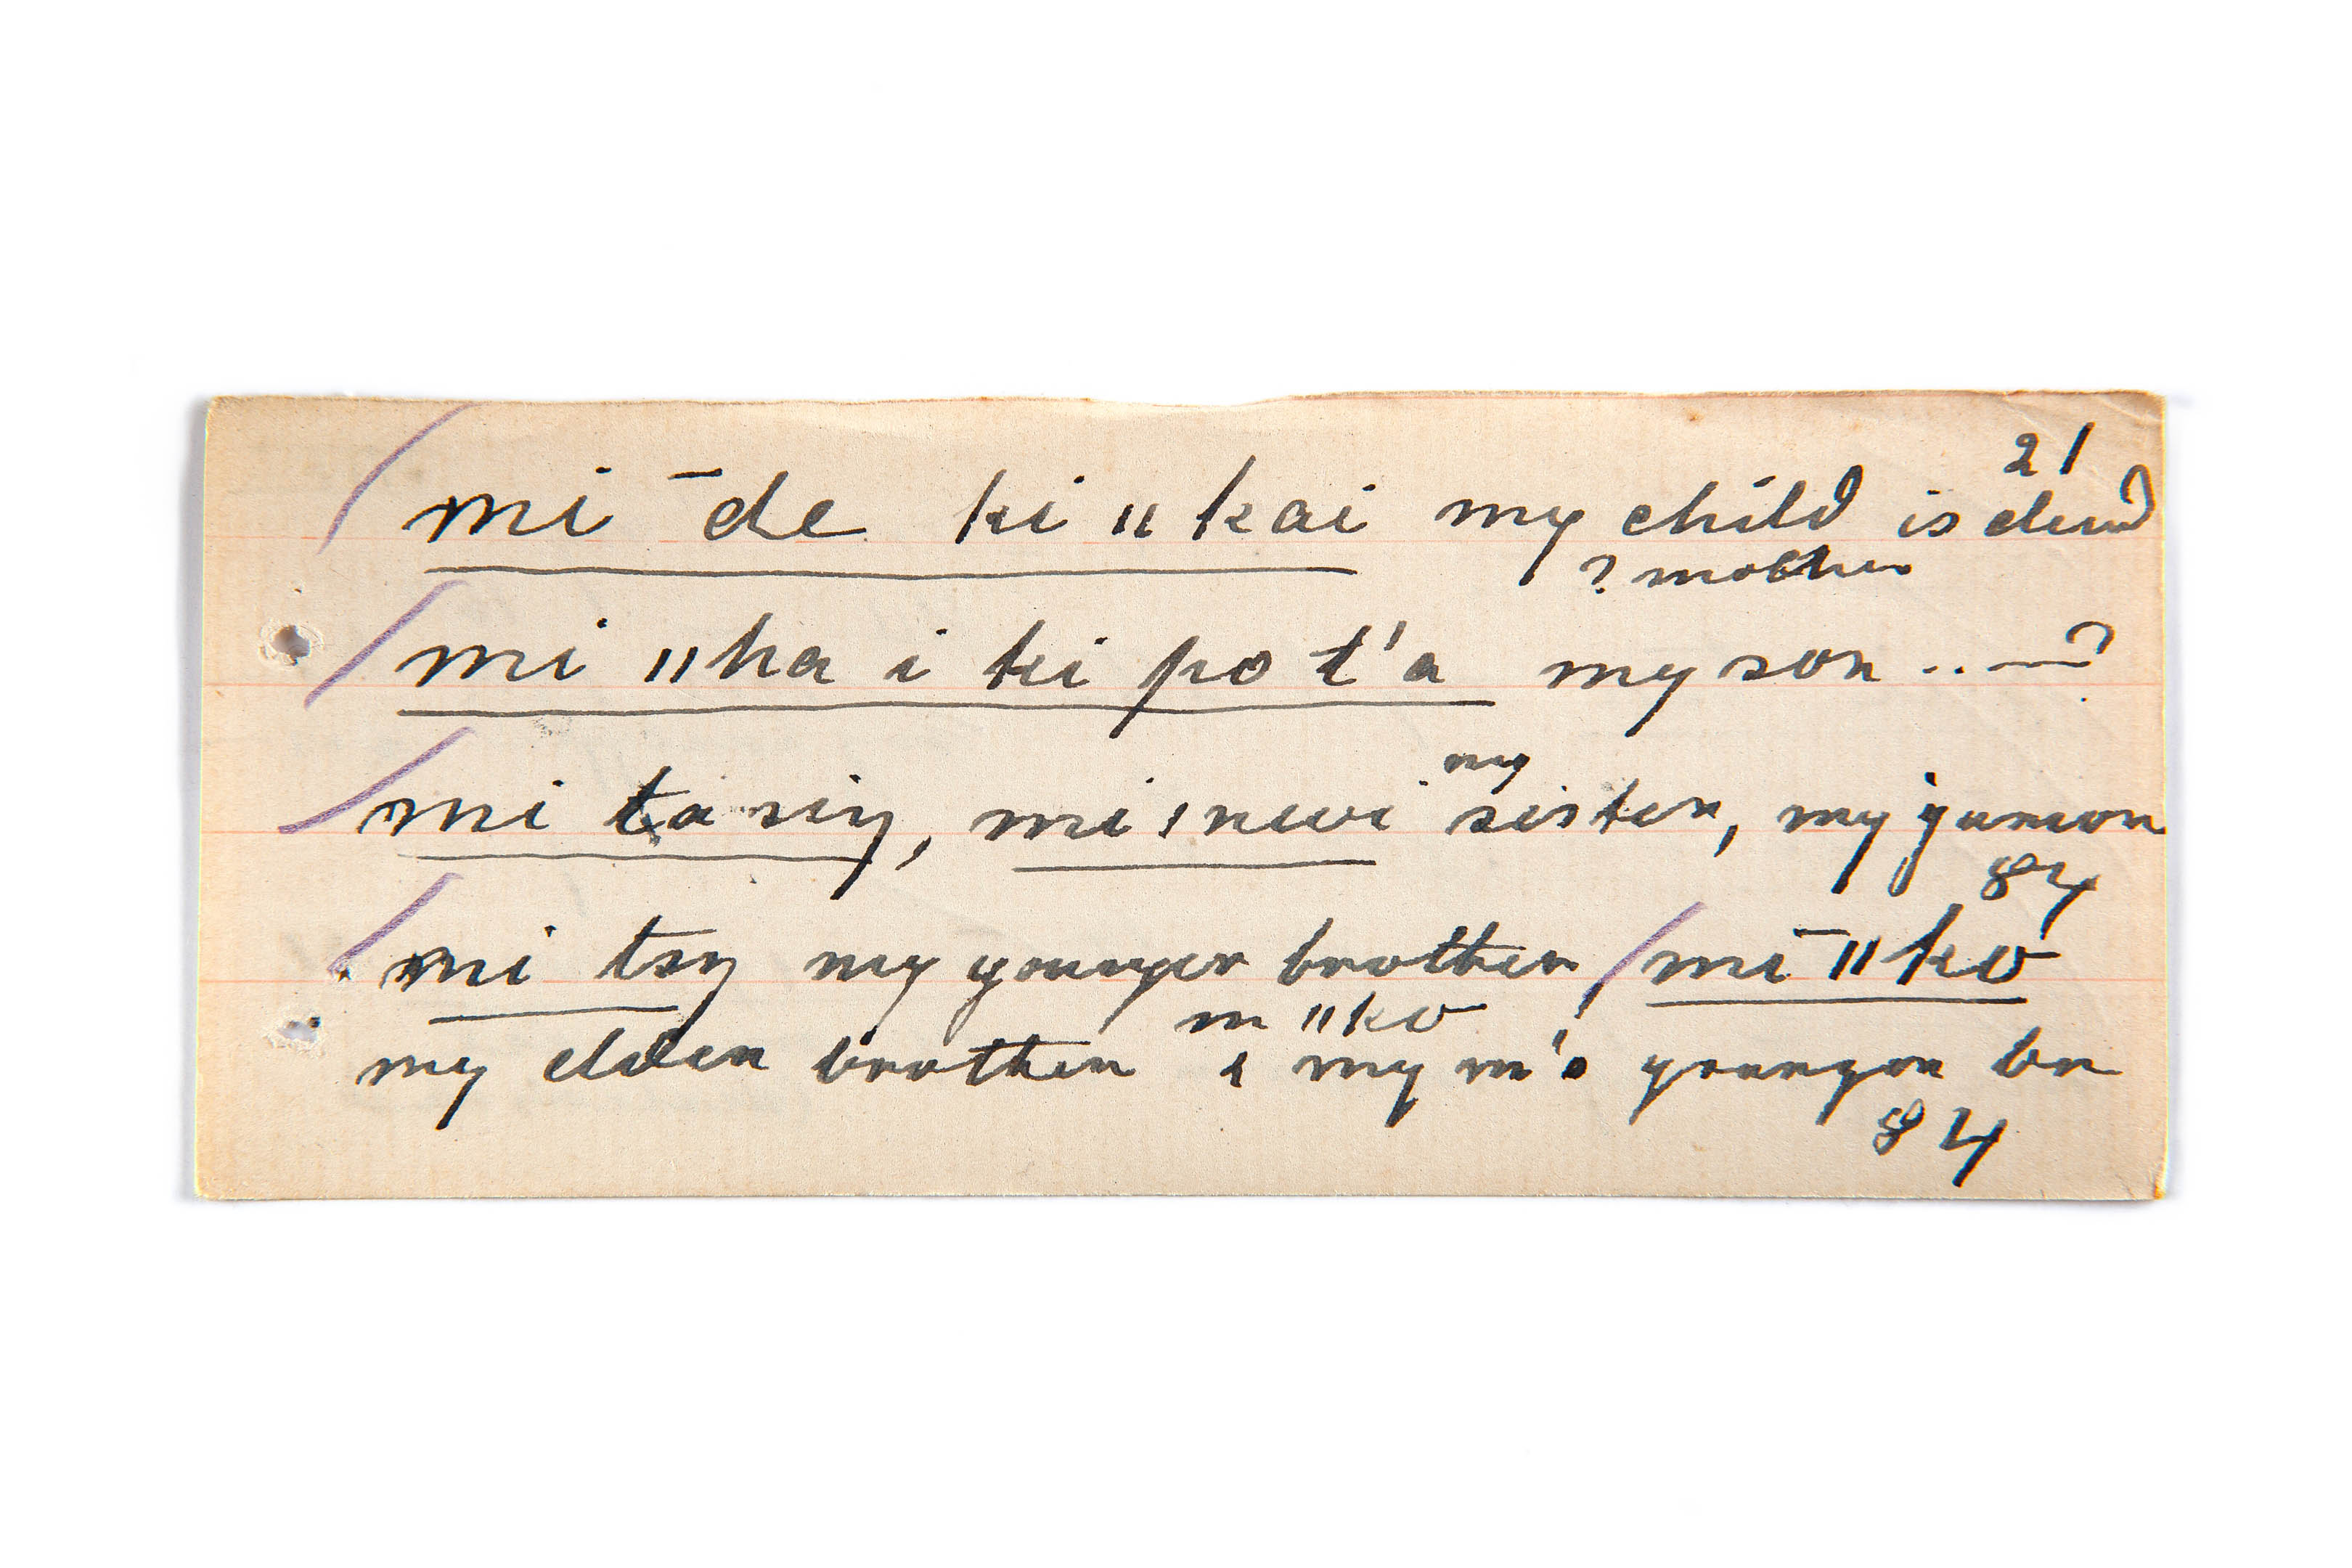 21
mi ¯de ki ıı kai my child is dead
? mother
mi ıı ha i ki po t'a my son .. —?
my
mi ta siy, mi ı newi sister, my
84
mi tsy my younger brother / mī ıı ko
m ıı ko
my elder brother & my m's younger br
84